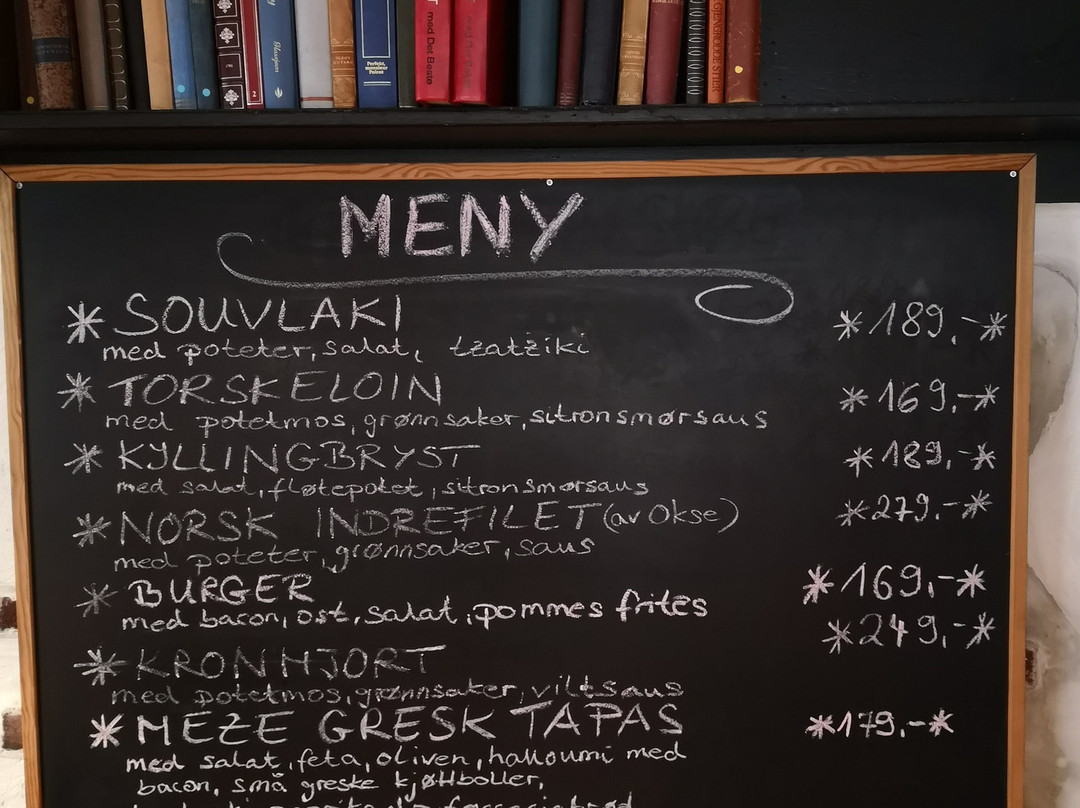 med Det Beste
Perfekt,
monsieur
Poirot
2
MENY
* SOUVLAKI *189,-*
med poteter, salat, tzatziki
* TORSKELOIN *169,-*
med potetmos, grønnsaker, sitronsmørsaus
* KYLLINGBRYST *189,-*
med salat, fløtepotet, sitronsmørsaus
* NORSK INDREFILET (av Okse) *279,-*
med poteter, grønnsaker, saus
* BURGER *169,-*
med bacon, ost, salat, pommes frites
* KRONHJORT *249,-*
med potetmos, grønnsaker, viltsaus
* MEZE GRESK TAPAS *179,-*
med salat, feta, oliven, halloumi med
bacon, små greske kjøttboller,